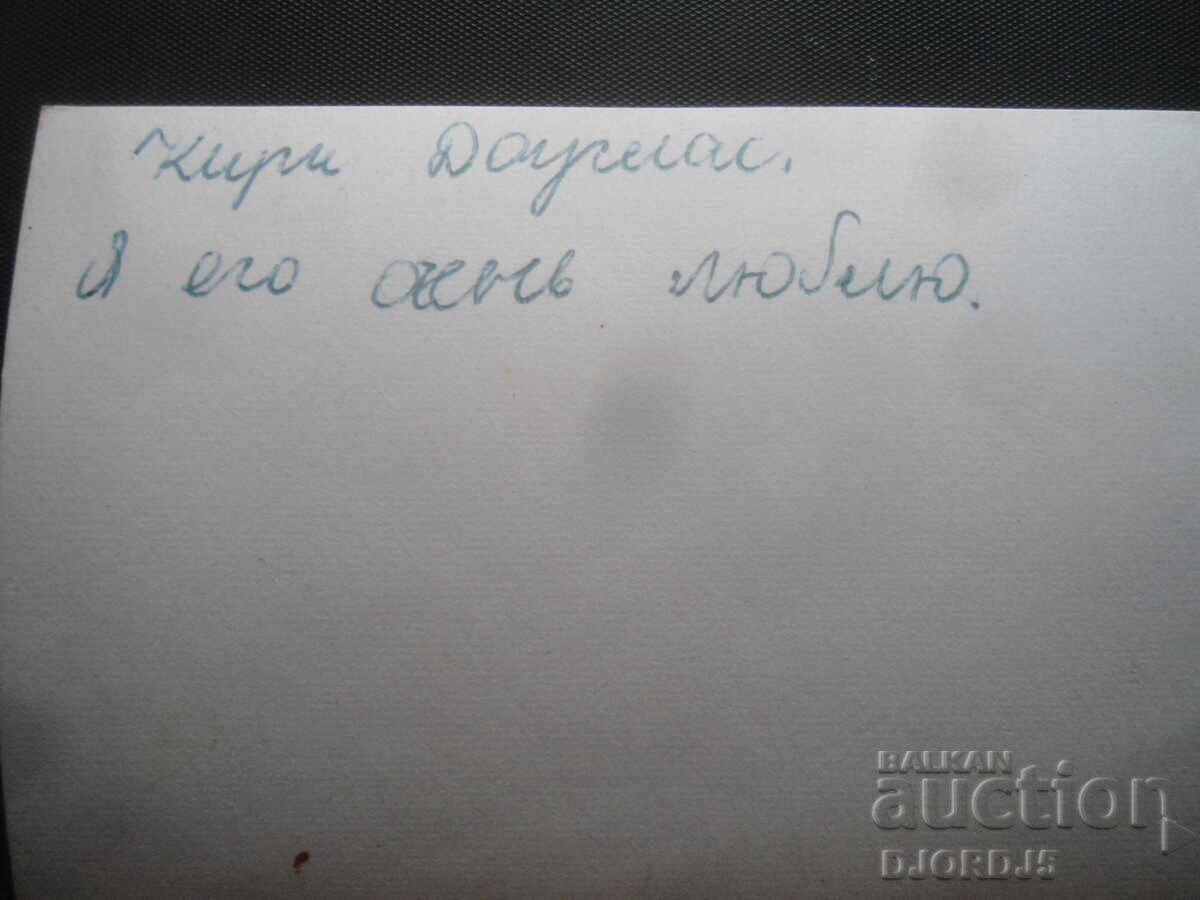 Кирк Доуглас.
Я его очень люблю.
BALKAN
auction
DJORDJ5